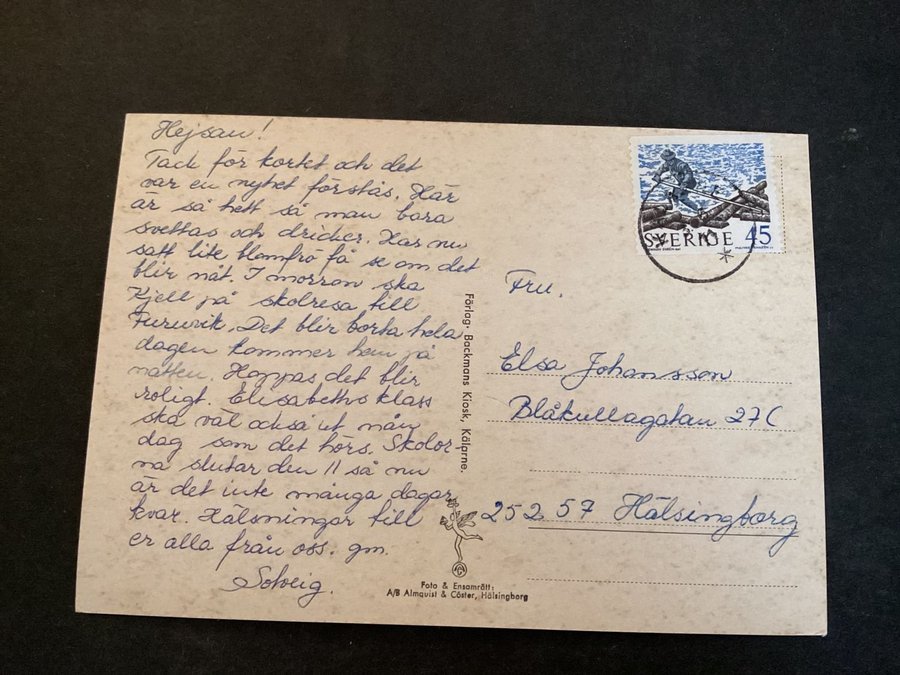 Hejsan!
Tack för kortet och det
var en nyhet förstås. Här
är så hett så man bara
svettas och dricker. Har nu
satt lite blomfrö få se om det
blir nåt. I morron ska
Kjell på skolresa till
Furuvik. Det blir borta hela
dagen kommer hem på
natten. Hoppas det blir
roligt. Elisabeths klass
ska väl också ut nån
dag som det hörs. Skolor-
na slutar den 11 så nu
är det inte många dagar
kvar. Hälsningar till
er alla från oss. gm.
Solveig.
Förlag: Backmans Kiosk, Kälarne.
Foto & Ensamrätt:
A/B Almquist & Cöster, Hälsingborg
SVERIGE 45
Fru.
Elsa Johansson
Blåkullagatan 27C
252 57 Hälsingborg